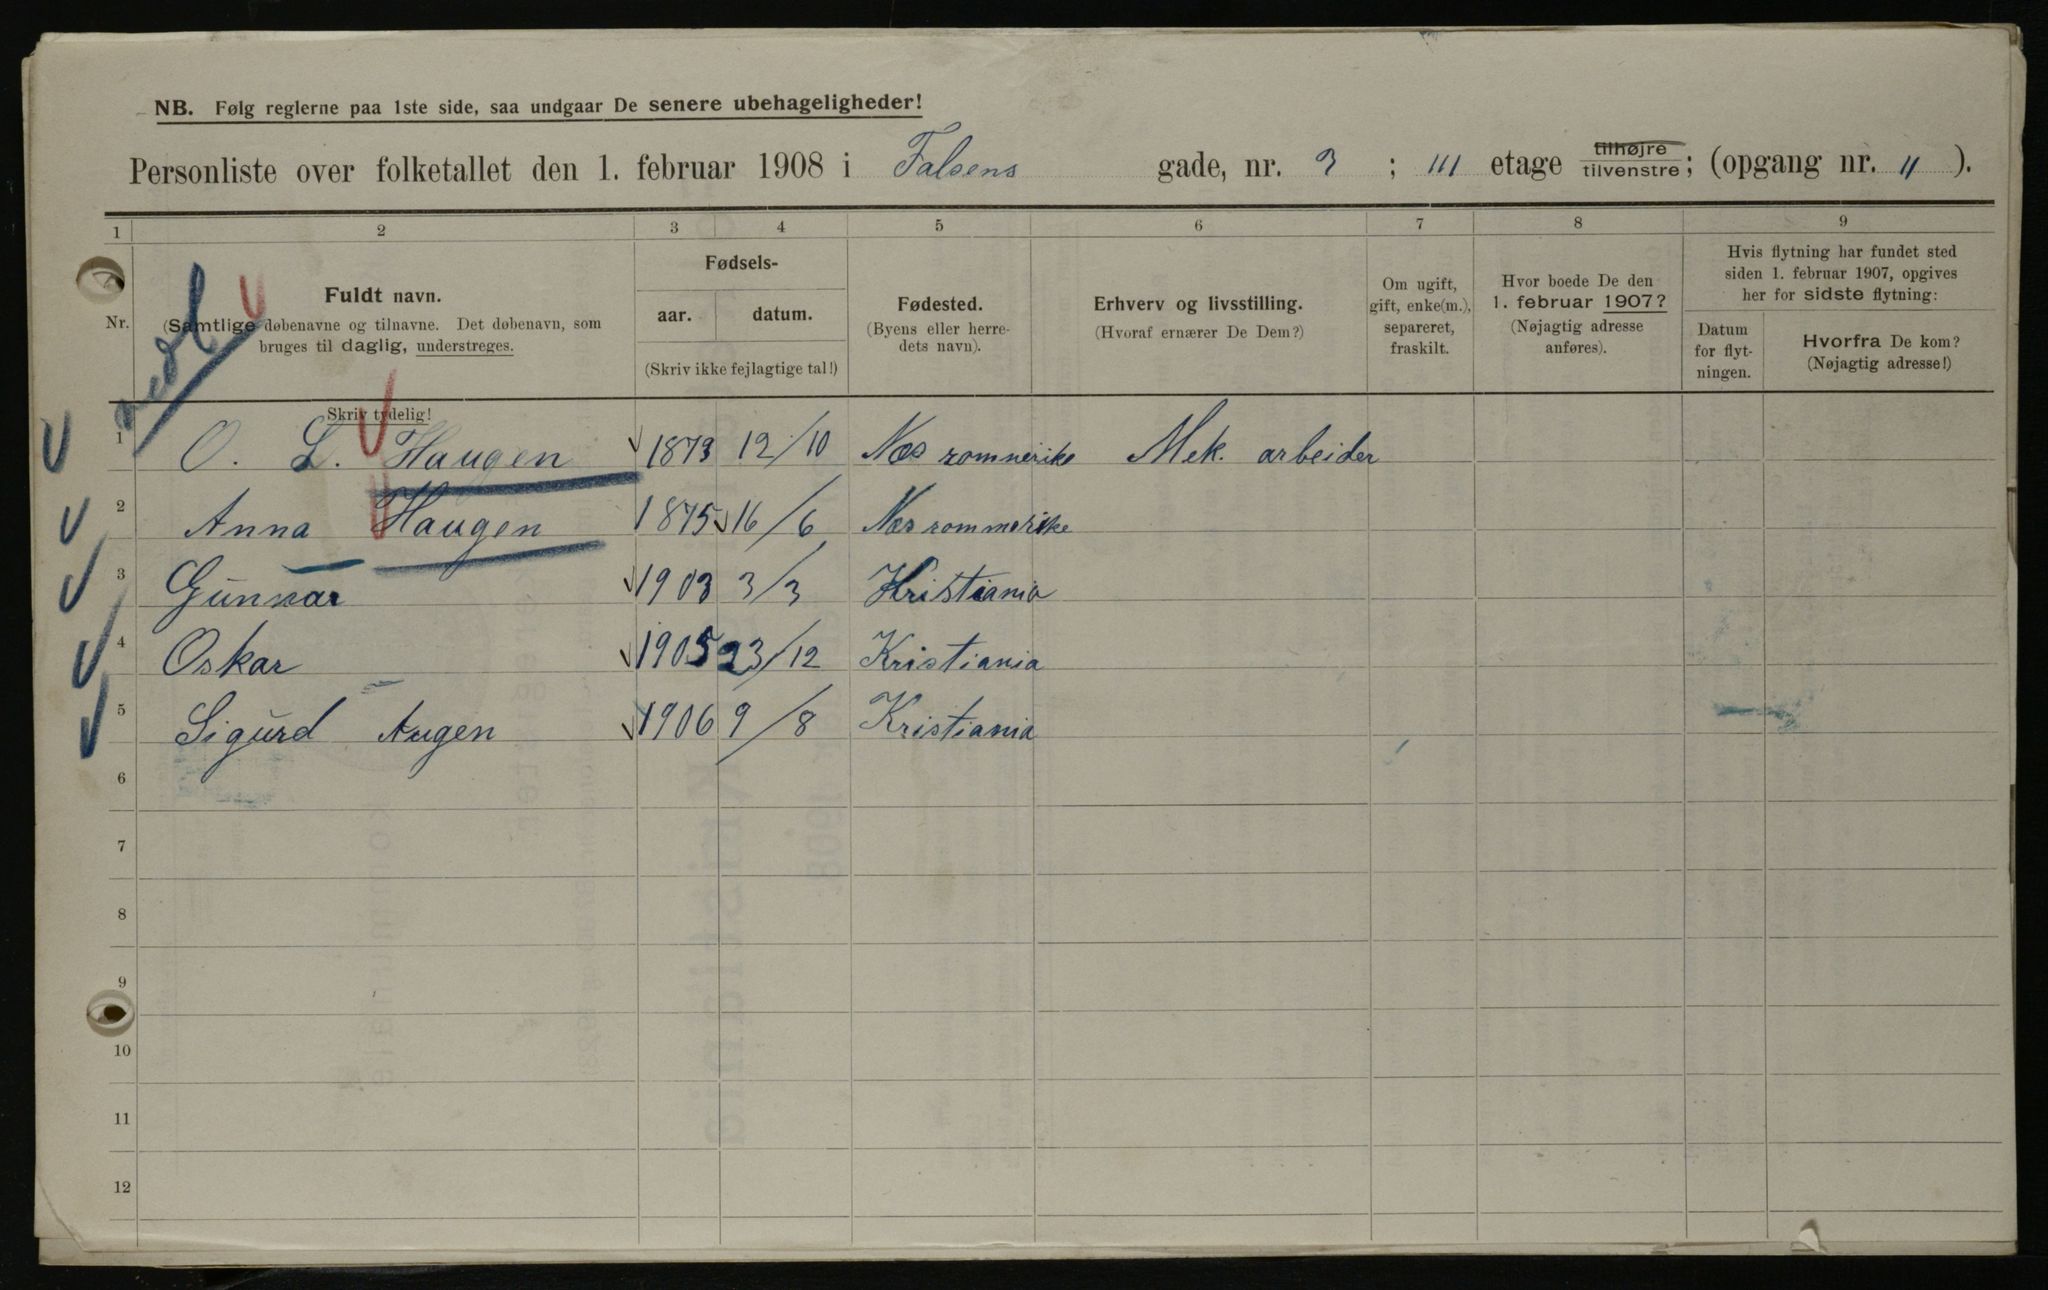 NB. Følg reglerne paa 1ste side, saa undgaar De senere ubehageligheder!
Personliste over folketallet den 1. februar 1908 i Falsens gade, nr. 3 ; III etage tilhøjre tilvenstre; (opgang nr. II ).
1 2 3 4 5 6 7 8 9
Nr.
Fuldt navn.
(Samtlige døbenavne og tilnavne. Det døbenavn, som
bruges til daglig, understreges.
Skriv tydelig!
Fødsels-
aar. datum.
(Skriv ikke fejlagtige tal!)
Fødested.
(Byens eller herre-
dets navn).
Erhverv og livsstilling.
(Hvoraf ernærer De Dem?)
Om ugift,
gift, enke(m.),
separeret,
fraskilt.
Hvor boede De den
1. februar 1907?
(Nøjagtig adresse
anføres).
Hvis flytning har fundet sted
siden 1. februar 1907, opgives
her for sidste flytning:
Datum
for flyt-
ningen.
Hvorfra De kom?
(Nøjagtig adresse!)
1 O. L. Haugen 1873 12/10 Nes romnerike Mek. arbeider
2 Anna Haugen 1875 16/6 Nes rommerike
3 Gunnar 1903 3/3 Kristiania
4 Oskar 1905 23/12 Kristiania
5 Sigurd Augen 1906 9/8 Kristiania
6
7
8
9
10
11
12